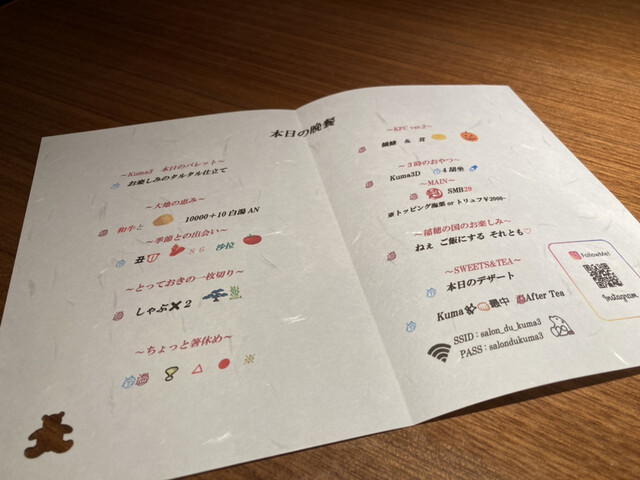 本日の晩餐
～Kuma3 本日のパレット～
お楽しみのタルタル仕立て
～大地の恵み～
和牛と 10000+10白湯AN
～季節との出会い～
丑 SG 沙拉
～とっておきの一枚切り～
しゃぶ✖2
～ちょっと箸休め～
△ ● ※
～KFC ver.2～
& 茸
～3時のおやつ～
Kuma3D 4胡坐
～MAIN～
SMB29
※トッピング海栗 or トリュフ￥2000-
～瑞穂の国のお楽しみ～
ねぇ ご飯にする それとも♡
～SWEETS&TEA～
本日のデザート
Kuma 最中 After Tea
SSID : salon_du_kuma3
PASS : salondukuma3
FollowMe!
Instagram